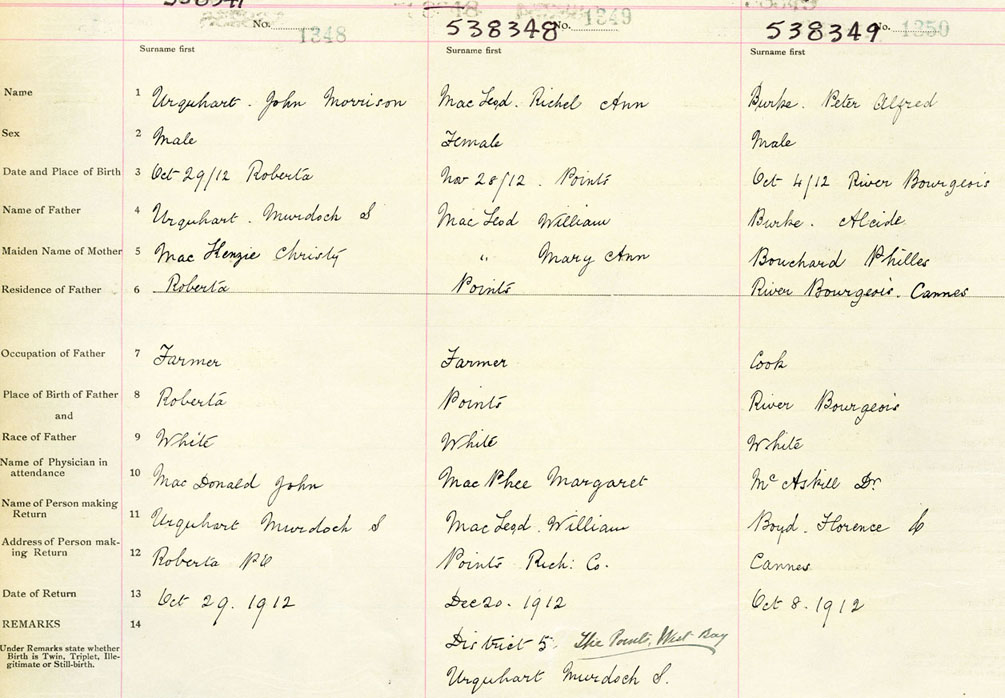 538347 538348 No. 1349 538349 No. 1350
No. 1348
Surname first Surname first Surname first
Name 1 Urquhart. John Morrison Mac Leod. Richel Ann Burke. Peter Alfred
Sex 2 Male Female Male
Date and Place of Birth 3 Oct 29/12 Roberta Nov 28/12. Points Oct 4/12 River Bourgeois
Name of Father 4 Urquhart. Murdoch S Mac Leod William Burke. Alcide
Maiden Name of Mother 5 Mac Kenzie Christy " Mary Ann Bouchard Philles
Residence of Father 6 Roberta Points River Bourgeois. Cannes
Occupation of Father 7 Farmer Farmer Cook
Place of Birth of Father 8 Roberta Points River Bourgeois
and
Race of Father 9 White White White
Name of Physician in
attendance 10 Mac Donald John Mac Phee Margaret Mc Askill Dr.
Name of Person making
Return 11 Urquhart Murdoch S Mac Leod. William Boyd. Florence C
Address of Person mak-
ing Return 12 Roberta PO Points Rich: Co. Cannes
Date of Return 13 Oct 29. 1912 Dec 20. 1912 Oct 8. 1912
REMARKS 14
Under Remarks state whether
Birth is Twin, Triplet, Ille-
gitimate or Still-birth.
District 5. The Points, West Bay
Urquhart Murdoch S.